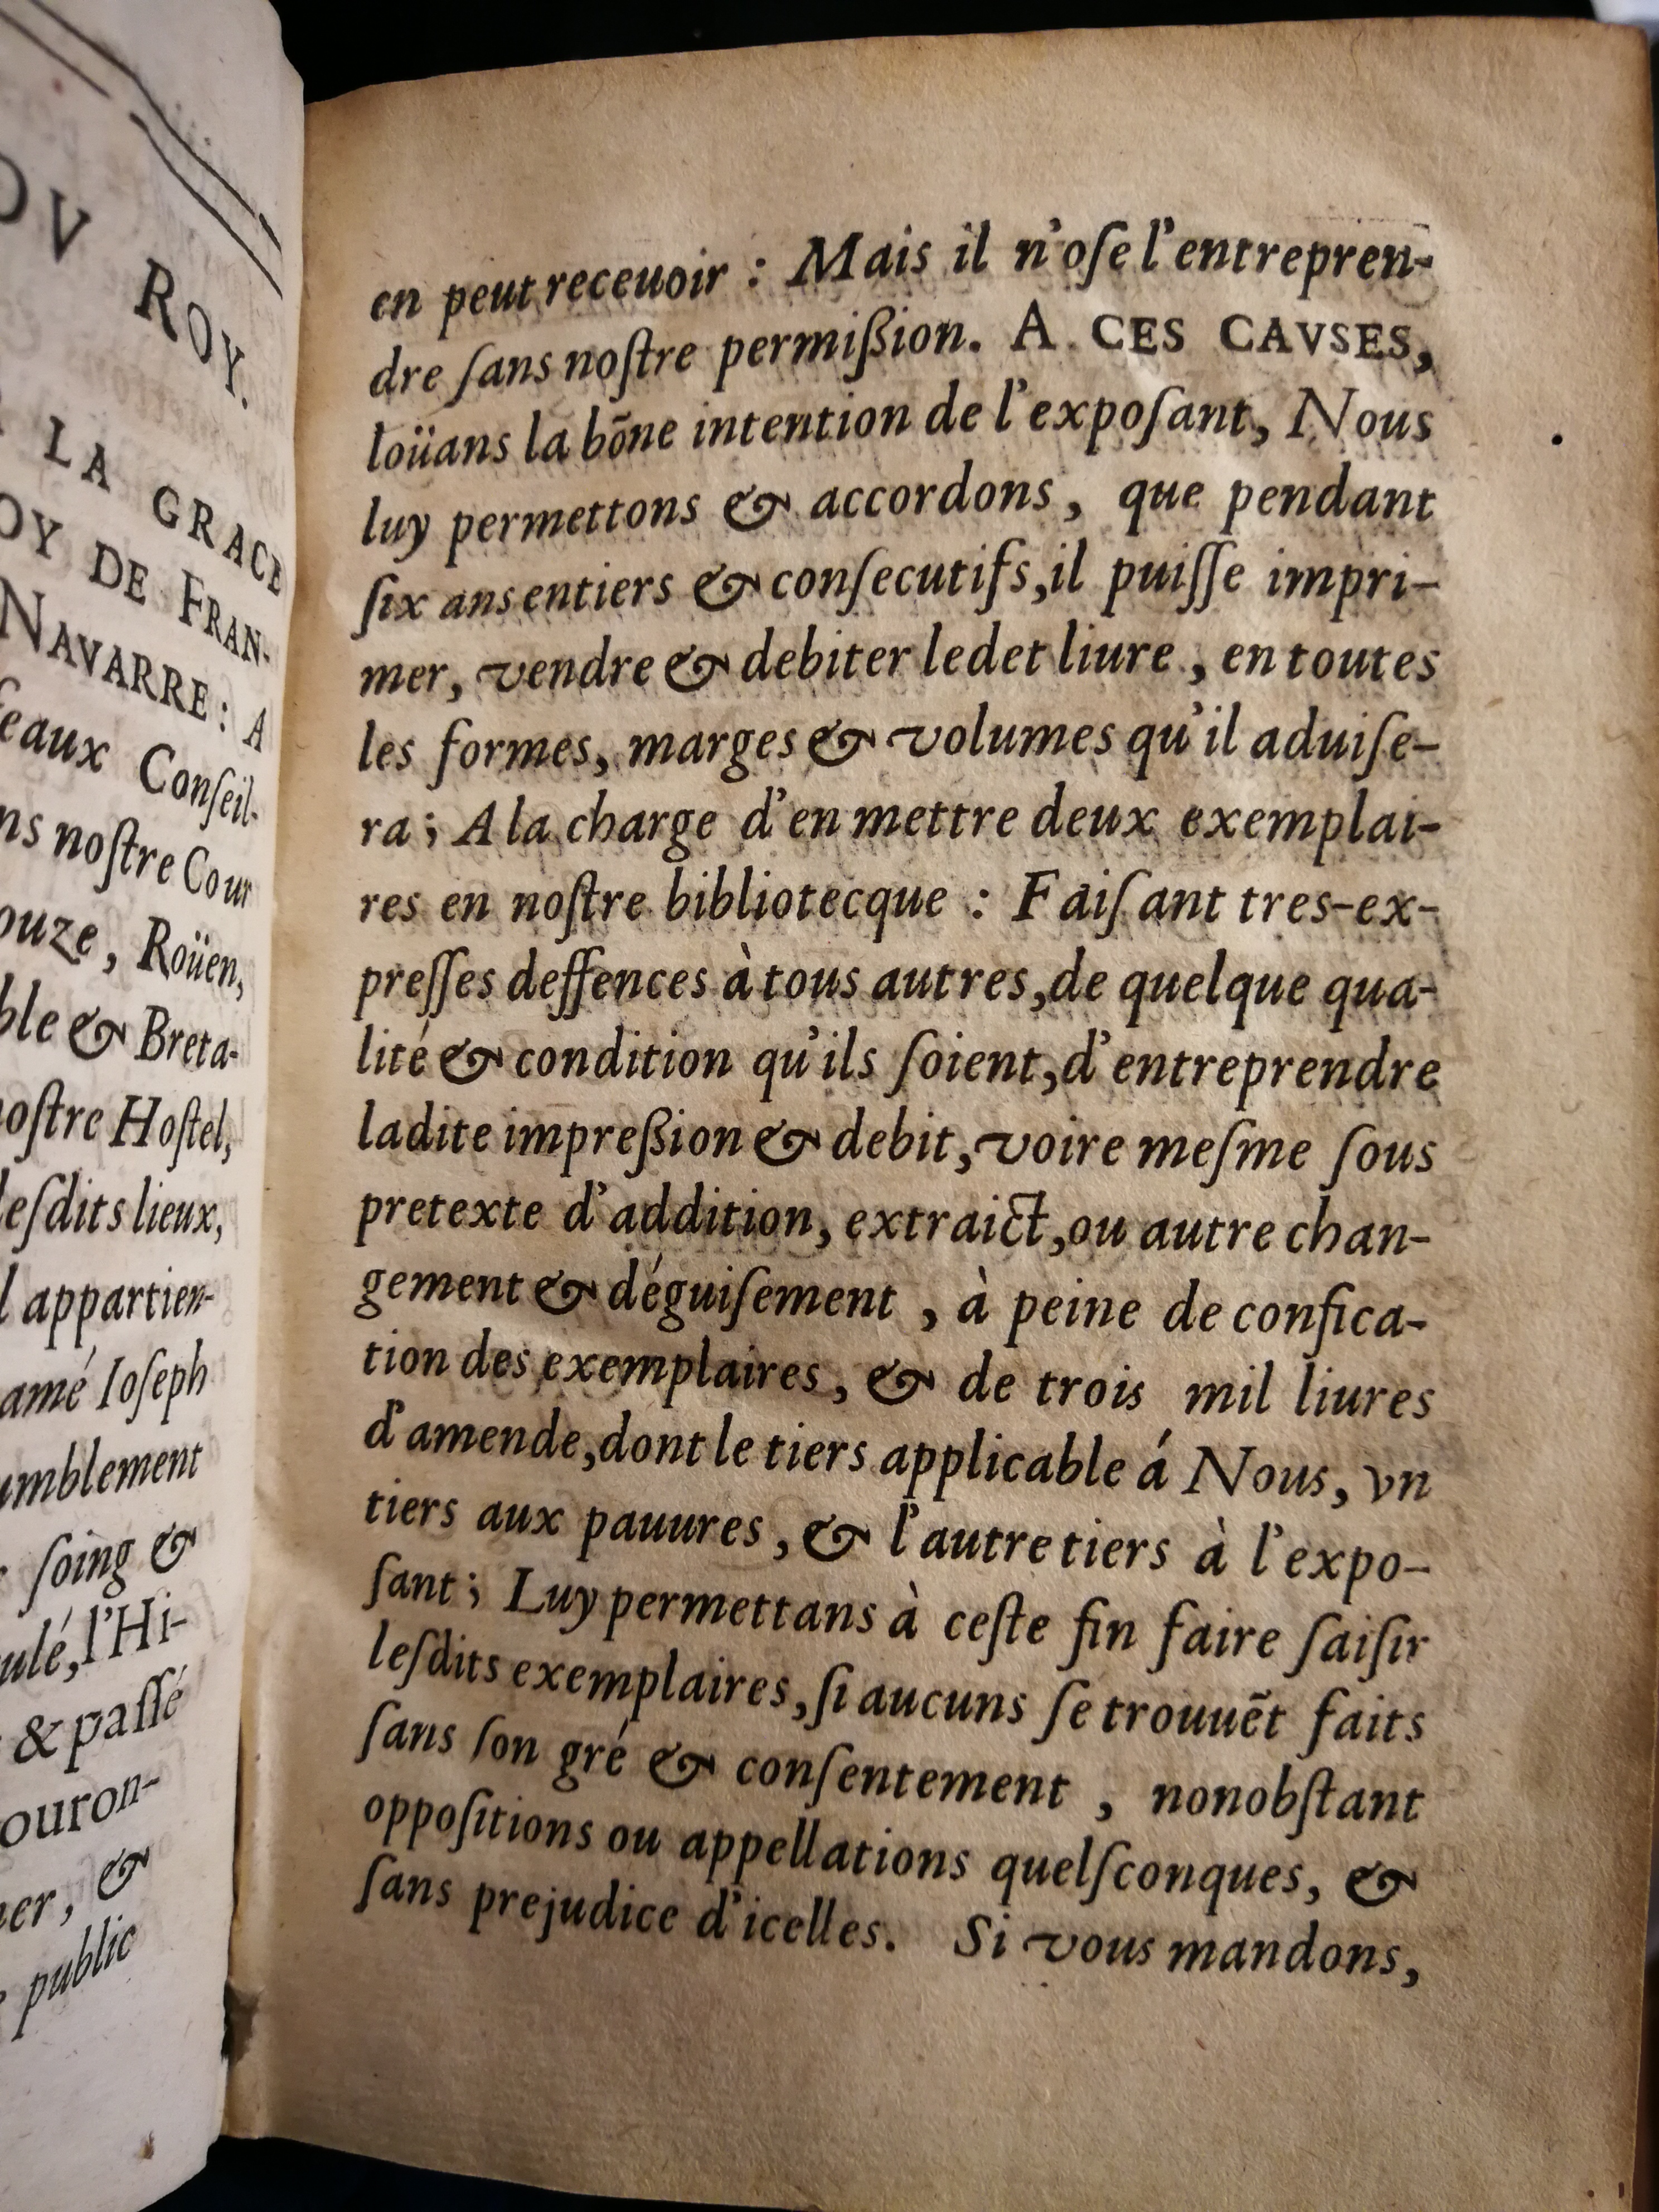 OV ROY.
LA GRACE
OY DE FRAN-
NAVARRE: A
eaux Conſeil-
ns noſtre Cour
ouze, Roüen,
ble & Breta-
noſtre Hoſtel,
leſdits lieux,
l appartien-
amé Ioſeph
umblement
ſoing &
ulé, l'Hi-
& paſſé
ouron-
er, &
public
en peut receuoir : Mais il n'oſe l'entrepren-
dre ſans noſtre permißion. A CES CAVSES,
loüans la bõne intention de l'expoſant, Nous
luy permettons & accordons, que pendant
ſix ans entiers & conſecutifs, il puiſſe impri-
mer, vendre & debiter ledet liure, en toutes
les formes, marges & volumes qu'il aduiſe-
ra ; A la charge d'en mettre deux exemplai-
res en noſtre bibliotecque : Faiſant tres-ex-
preſſes deffences à tous autres, de quelque qua-
lité & condition qu'ils ſoient, d'entreprendre
ladite impreßion & debit, voire meſme ſous
pretexte d'addition, extraict, ou autre chan-
gement & déguiſement, à peine de confica-
tion des exemplaires, & de trois mil liures
d'amende, dont le tiers applicable á Nous, vn
tiers aux pauures, & l'autre tiers à l'expo-
ſant ; Luy permettans à ceſte fin faire ſaiſir
leſdits exemplaires, ſi aucuns ſe trouuẽt faits
ſans ſon gré & conſentement, nonobſtant
oppoſitions ou appellations quelſconques, &
ſans prejudice d'icelles. Si vous mandons,